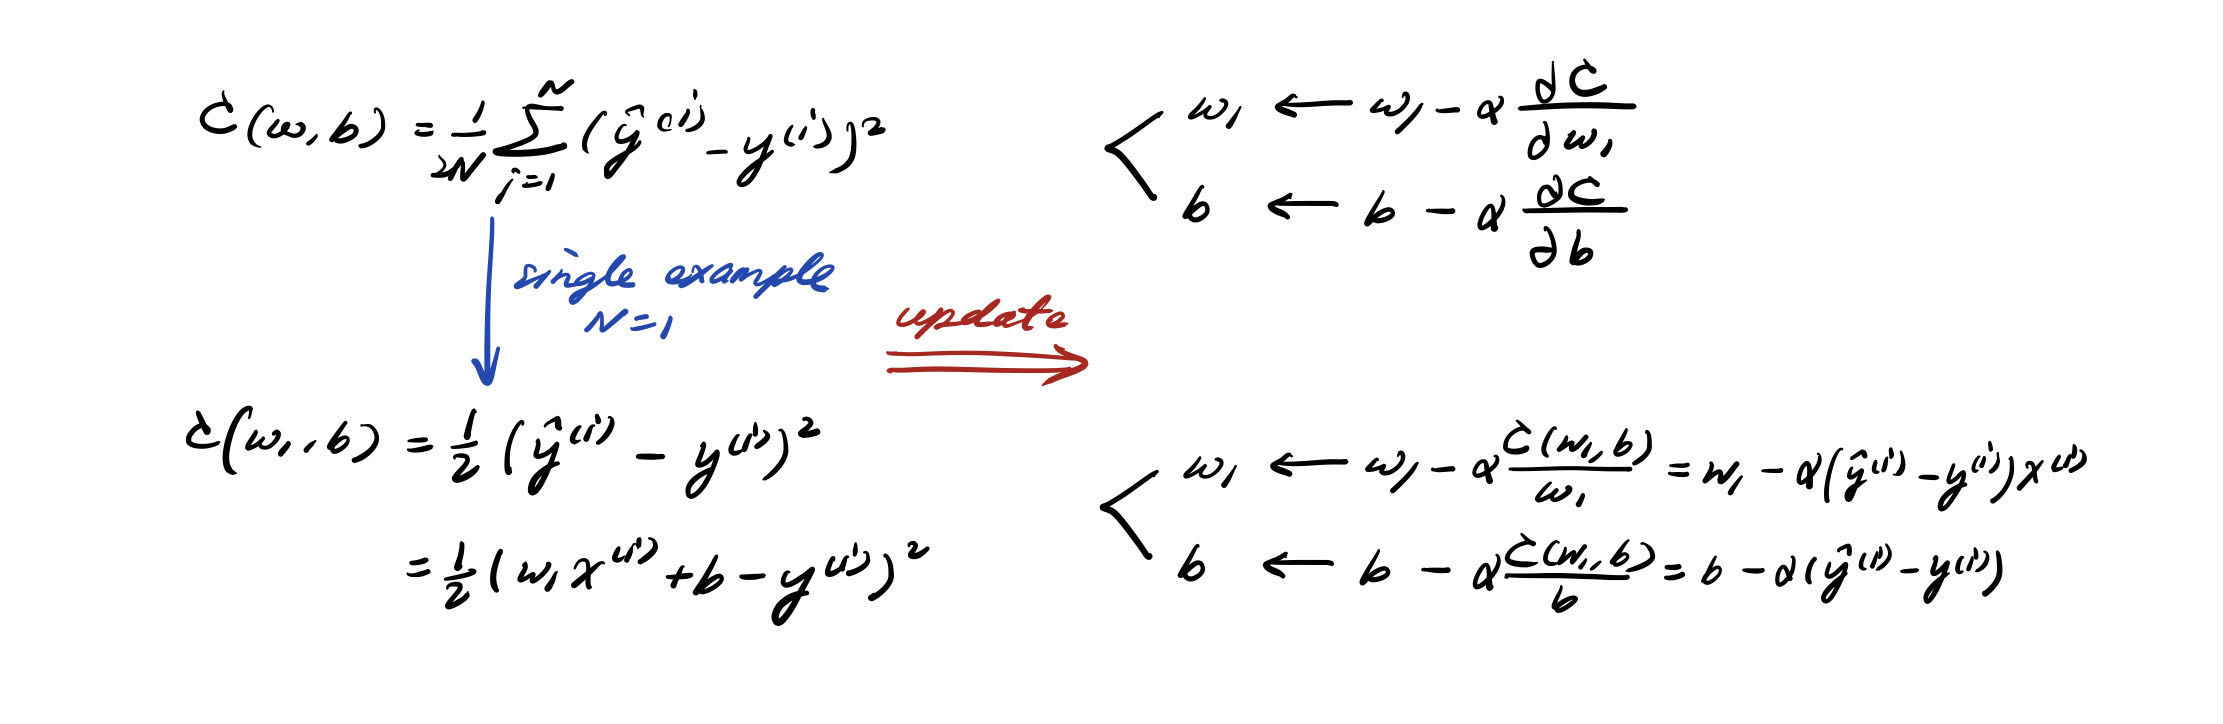 C(w, b) = 1/2N ∑_{i=1}^{N} (ŷ^{(i)} − y^{(i)})²
single example
N=1
C(w₁, b) = 1/2 (ŷ^{(i)} − y^{(i)})²
= 1/2 (w₁x^{(i)} + b − y^{(i)})²
update
w₁ ← w₁ − α ∂C/∂w₁
b ← b − α ∂C/∂b
w₁ ← w₁ − α C(w₁, b)/w₁ = w₁ − α(ŷ^{(i)} − y^{(i)})x^{(i)}
b ← b − α C(w₁, b)/b = b − α(ŷ^{(i)} − y^{(i)})